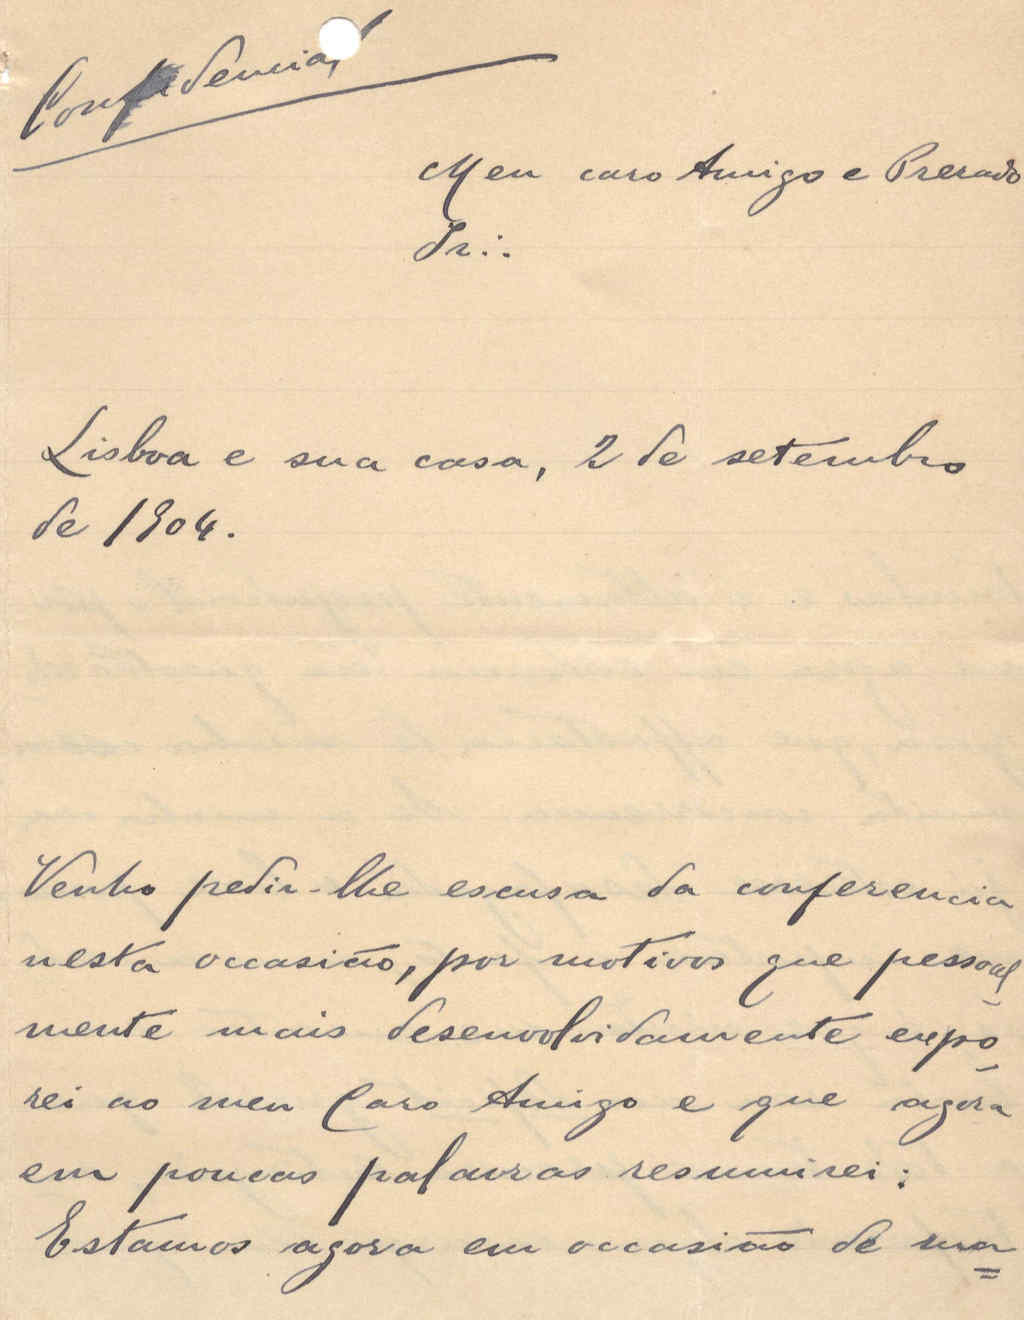 Confidencial
Meu caro Amigo e Prezado
Ir∴
Lisboa e sua casa, 2 de setembro
de 1904.
Venho pedir-lhe escusa da conferencia
nesta occasião, por motivos que pessoal-
mente mais desenvolvidamente expo-
rei ao meu Caro Amigo e que agora
em poucas palavras resumirei:
Estamos agora em occasião de ma=